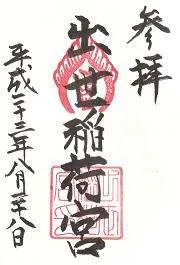 参拝
出世稲荷宮
平成二十三年八月二十八日